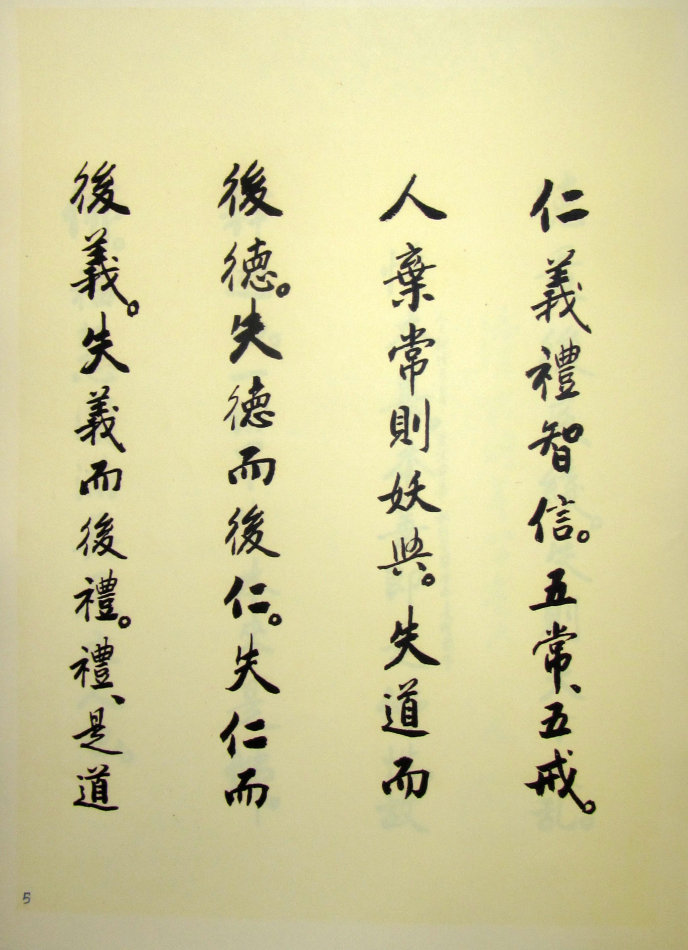 仁義禮智信。五常、五戒。
人棄常則妖興。失道而
後德。失德而後仁。失仁而
後義。失義而後禮。禮、是道
5